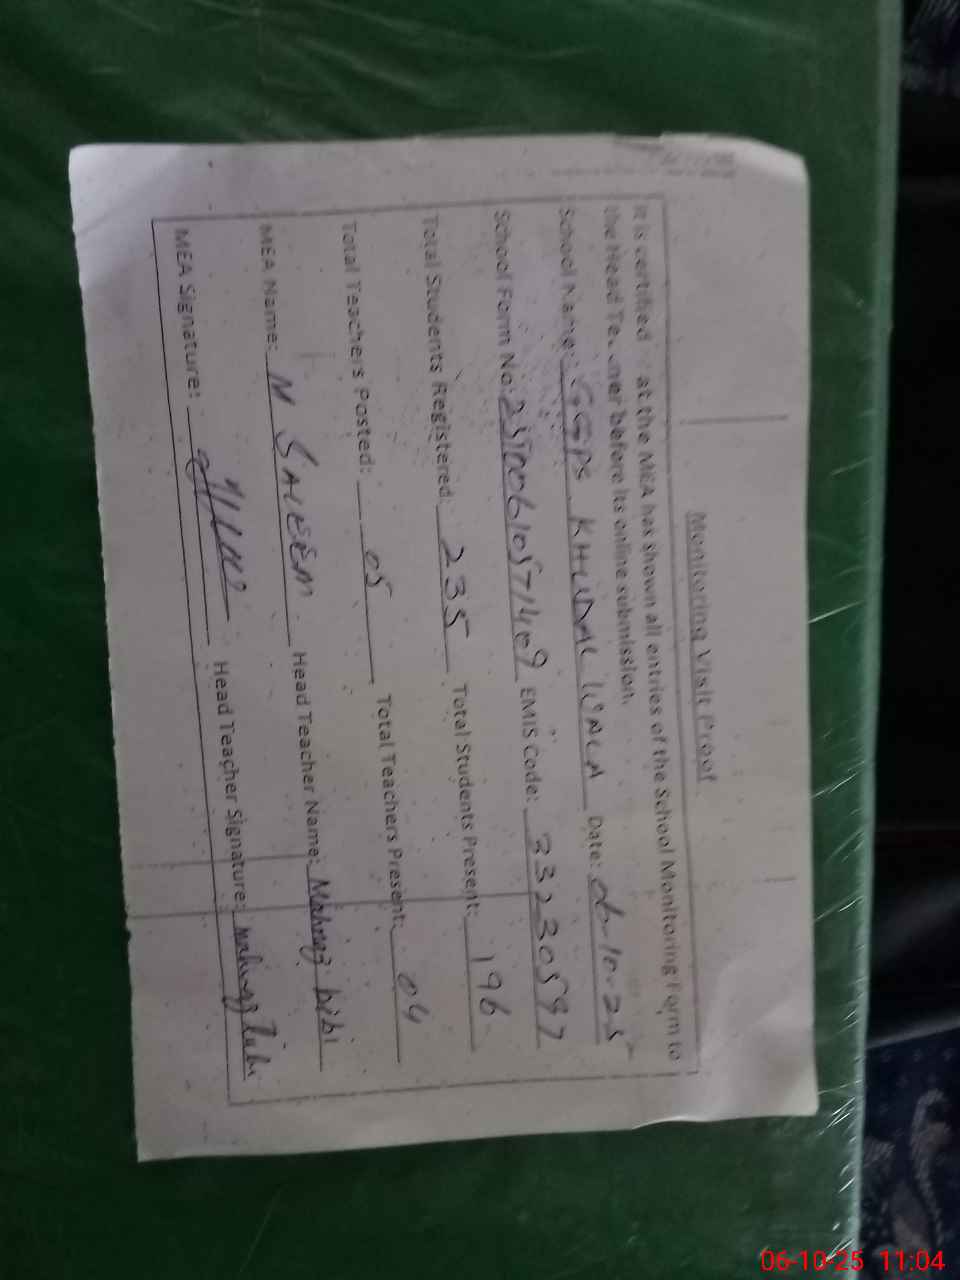 Monitoring Visit Proof
It is certified at the MEA has shown all entries of the School Monitoring Form to
the Head Te. .ner before its online submission.
School Name: GGPS KHUDAI WALA Date: 06-10-25
School Form No: EMIS Code: 33230597
Total Students Registered: 235 Total Students Present: 196
Total Teachers Posted: 05 Total Teachers Present: 04
MEA Name: M SALEEM Head Teacher Name: bibi
MEA Signature: Head Teacher Signature:
06-10-25 11:04